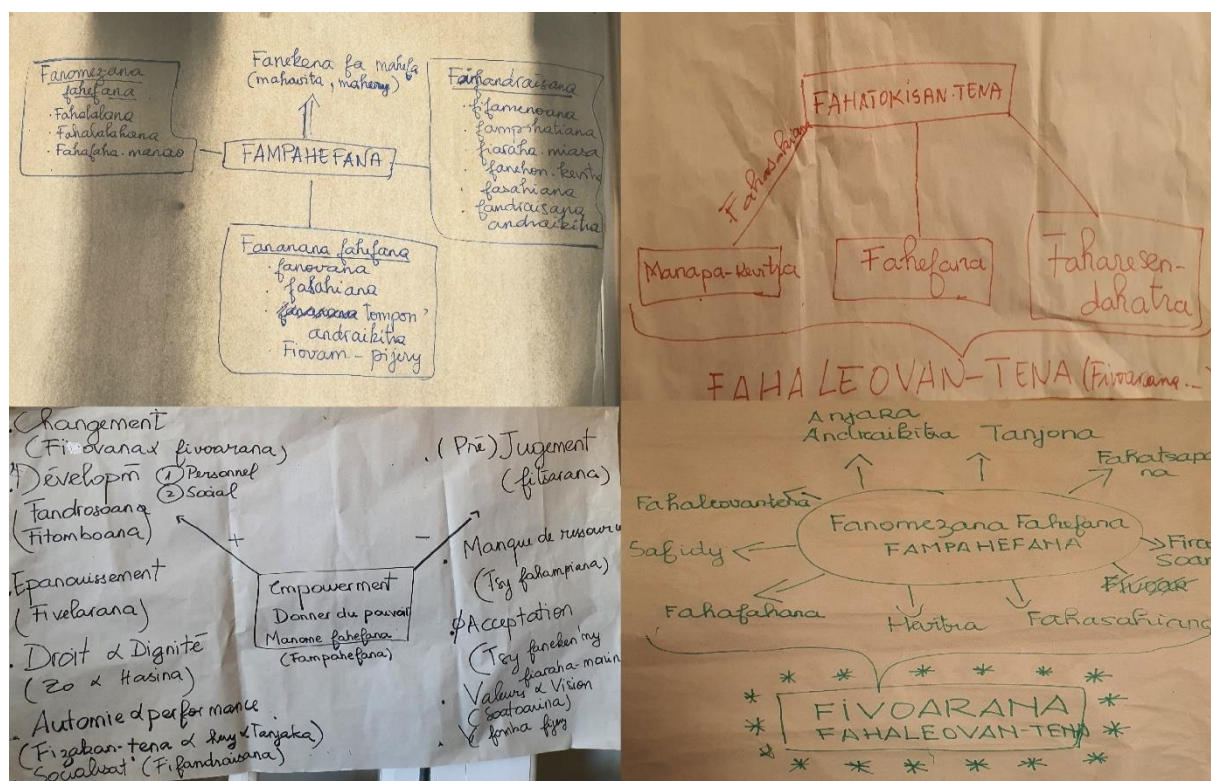 Fanomezana
fahefana
· Fahalalana
· Fahalalahana
· Fahafaha-manao
Fanekena fa mahefa
(mahavita, mahery)
FAMPAHEFANA
Fifandraisana
· ffamenoana
· fampihatiana
· fiaraha-miasa
· fanehon-kevitra
· fasahiana
· fandraisana
andraikitra
Fananana fahefana
· fanovana
· fasahiana
· Tompon'
andraikitra
· Fiovam-pijery
FAHATOKISAN-TENA
Fahasahiana
Manapa-kevitra
Fahefana
Faharesen-
dahatra
FAHALEOVAN-TENA (Fivoarana...)
· Changement
(Fiovana & fivoarana)
Développm ① Personnel
② Social
(Fandrosoana
(Fitomboana)
Epanouissement
(Fivelarana)
· Droit & Dignité
(Zo & Hasina)
· Automie & performance
(Fizakan-tena & & Tanjaka)
Socialisat° (Fifandraisana)
+
-
Empowerment
Donner du pouvoir
Manome fahefana
(Fampahefana)
· (Pré) Jugement
(fitsarana)
· Manque de ressource
(Tsy fahampiana)
Acceptation
(Tsy faneken'ny
fiaraha-)
· Valeurs & Vision
(Soatoavina)
fomba fijery
Anjara
Andraikitra
Tanjona
Fahatsapa
na
Fahaleovantena
Fanomezana Fahefana
FAMPAHEFANA
Safidy
Fahafahana
Hevitra
Fahasahiana
FIVOARANA
FAHALEOVAN-TENA